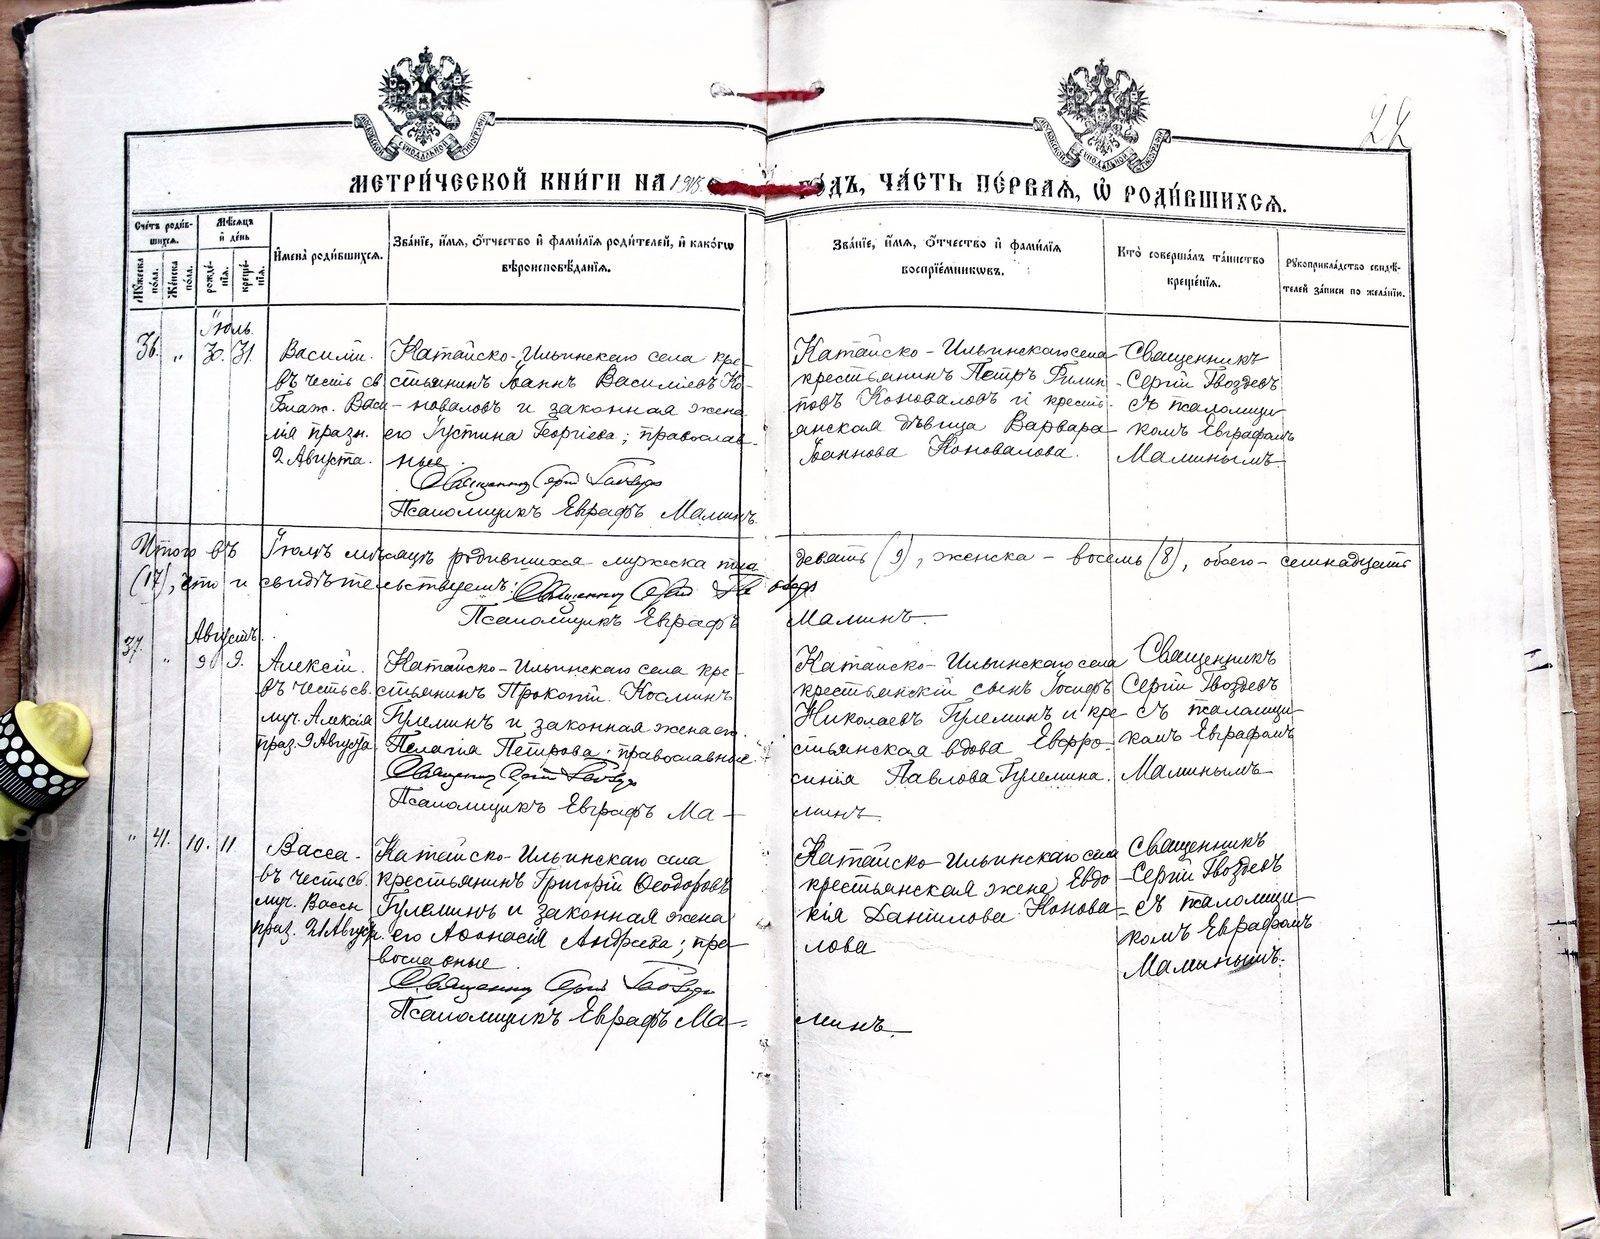 22
МЕТРИ́ЧЕСКОЙ КНИ́ГИ НА 1915 ГО́ДЪ, ЧА́СТЬ ПЕ́РВАЯ, Ѡ҆ РОДИ́ВШИХСЯ.
Сче́тъ роди́вшихся.
Мꙋ́жеска по́ла.
Же́нска по́ла.
Мѣ́сяцъ и҆ де́нь
рожде́нїѧ.
креще́нїѧ.
И҆мена̀ роди́вшихся.
Зва́нїе, и҆́мѧ, ѻ҆́тчество и҆ фами́лїѧ роди́телей, и҆ како́гѡ
вѣроисповѣ́данїѧ.
Зва́нїе, и҆́мѧ, ѻ҆́тчество и҆ фами́лїѧ
воспрїе́мникѡвъ.
Кто̀ соверша́лъ та́инство
креще́нїѧ.
Рꙋкоприкла́дство свидѣ́-
телей за́писи по жела́нїю.
Іюль.
36. " 30. 31.
Василій.
въ честь св
Блаж. Васи-
лія празн.
2 Августа.
Катайско-Ильинскаго села кре-
стьянинъ Іоаннъ Василіевъ Ко-
новаловъ и законная жена
его Іустина Георгіева; православ-
ные.
Священникъ Сергій Гвоздевъ
Псаломщикъ Евграфъ Маминъ.
Катайско-Ильинскаго села
крестьянинъ Петръ Филип-
повъ Коноваловъ и кресть-
янская дѣвица Варвара
Іоаннова Коновалова.
Священникъ
Сергій Гвоздевъ
съ псаломщи-
комъ Евграфомъ
Маминымъ.
Итого въ Іюлѣ мѣсяцѣ родившихся мужеска пола девять (9), женска - восемь (8), обоего - семнадцать
(17), что и свидѣтельствуемъ: Священникъ Сергій Гвоздевъ
Псаломщикъ Евграфъ Маминъ.
Августъ.
37. " 9 9.
Алексій.
въ честь св.
муч. Алексія
праз. 9 Августа
Катайско-Ильинскаго села кре-
стьянинъ Прокопій Косминъ
Гулеминъ и законная жена его
Пелагія Петрова; православные.
Священникъ Сергій Гвоздевъ
Псаломщикъ Евграфъ Ма-
минъ.
Катайско-Ильинскаго села
крестьянскій сынъ Іосифъ
Николаевъ Гулеминъ и кре-
стьянская вдова Евфро-
синія Павлова Гулемина.
Священникъ
Сергій Гвоздевъ
съ псаломщи-
комъ Евграфомъ
Маминымъ
" 41. 10. 11
Васса.
въ честь св.
муч. Вассы
праз. 21 Август.
Катайско-Ильинскаго села
крестьянинъ Григорій Ѳеодоровъ
Гулеминъ и законная жена
его Аѳонасія Андреева; пра-
вославные.
Священникъ Сергій Гвоздевъ
Псаломщикъ Евграфъ Ма-
минъ.
Катайско-Ильинскаго села
крестьянская жена Евдо
кія Даніилова Конова-
лова
Священникъ
Сергій Гвоздевъ
съ псаломщи-
комъ Евграфомъ
Маминымъ.